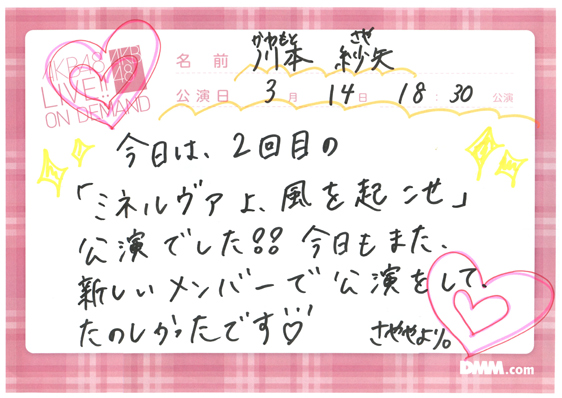 AKB48
LIVE!!
ON DEMAND
AKB
48
名前 かわもと さや
川本 紗矢
公演日 3月 14日 18:30 公演
今日は、2回目の
「ミネルヴァよ、風を起こせ」
公演でした!! 今日もまた、
新しいメンバーで公演をして、
たのしかったです♡
さややより。
DMM.com